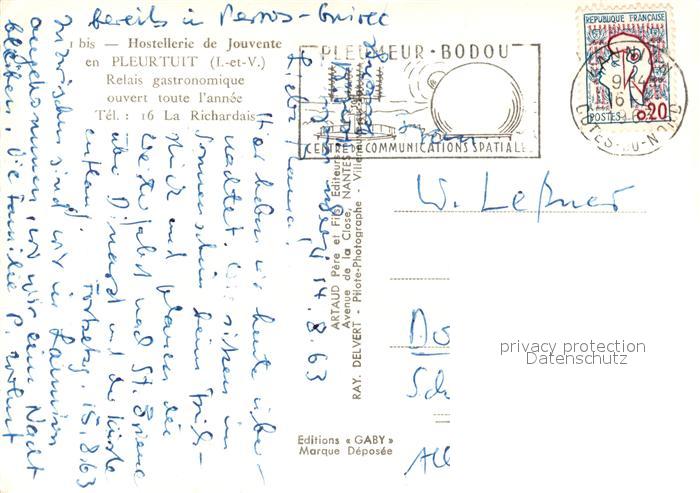 bereits in Perros-Guirec
1 bis — Hostellerie de Jouvente
en PLEURTUIT (I.-et-V.)
Relais gastronomique
ouvert toute l'année
Tél. : 16 La Richardais
PLEUMEUR-BODOU
CENTRE DE COMMUNICATIONS SPATIALES
REPUBLIQUE FRANÇAISE
POSTES 0,20
COTES-DU-NORD
14.8.63
Hier haben wir heute über-
nachtet. Wir sitzen im
Sonnenschein beim Früh-
stück und planen die
Weiterfahrt nach St. Brieuc
über Dinard und die Küste
entlang.
Forts. 15.8.63
Inzwischen sind wir in Lannion
angekommen, wo wir eine Nacht
bleiben. Die Familie P. wohnt
ARTAUD Père et Fils Editeurs
Avenue de la Close, NANTES
RAY. DELVERT - Pilote-Photographe - Villeneuve
W. Leßner
Do
Sch
All
privacy protection
Datenschutz
Editions « GABY »
Marque Déposée